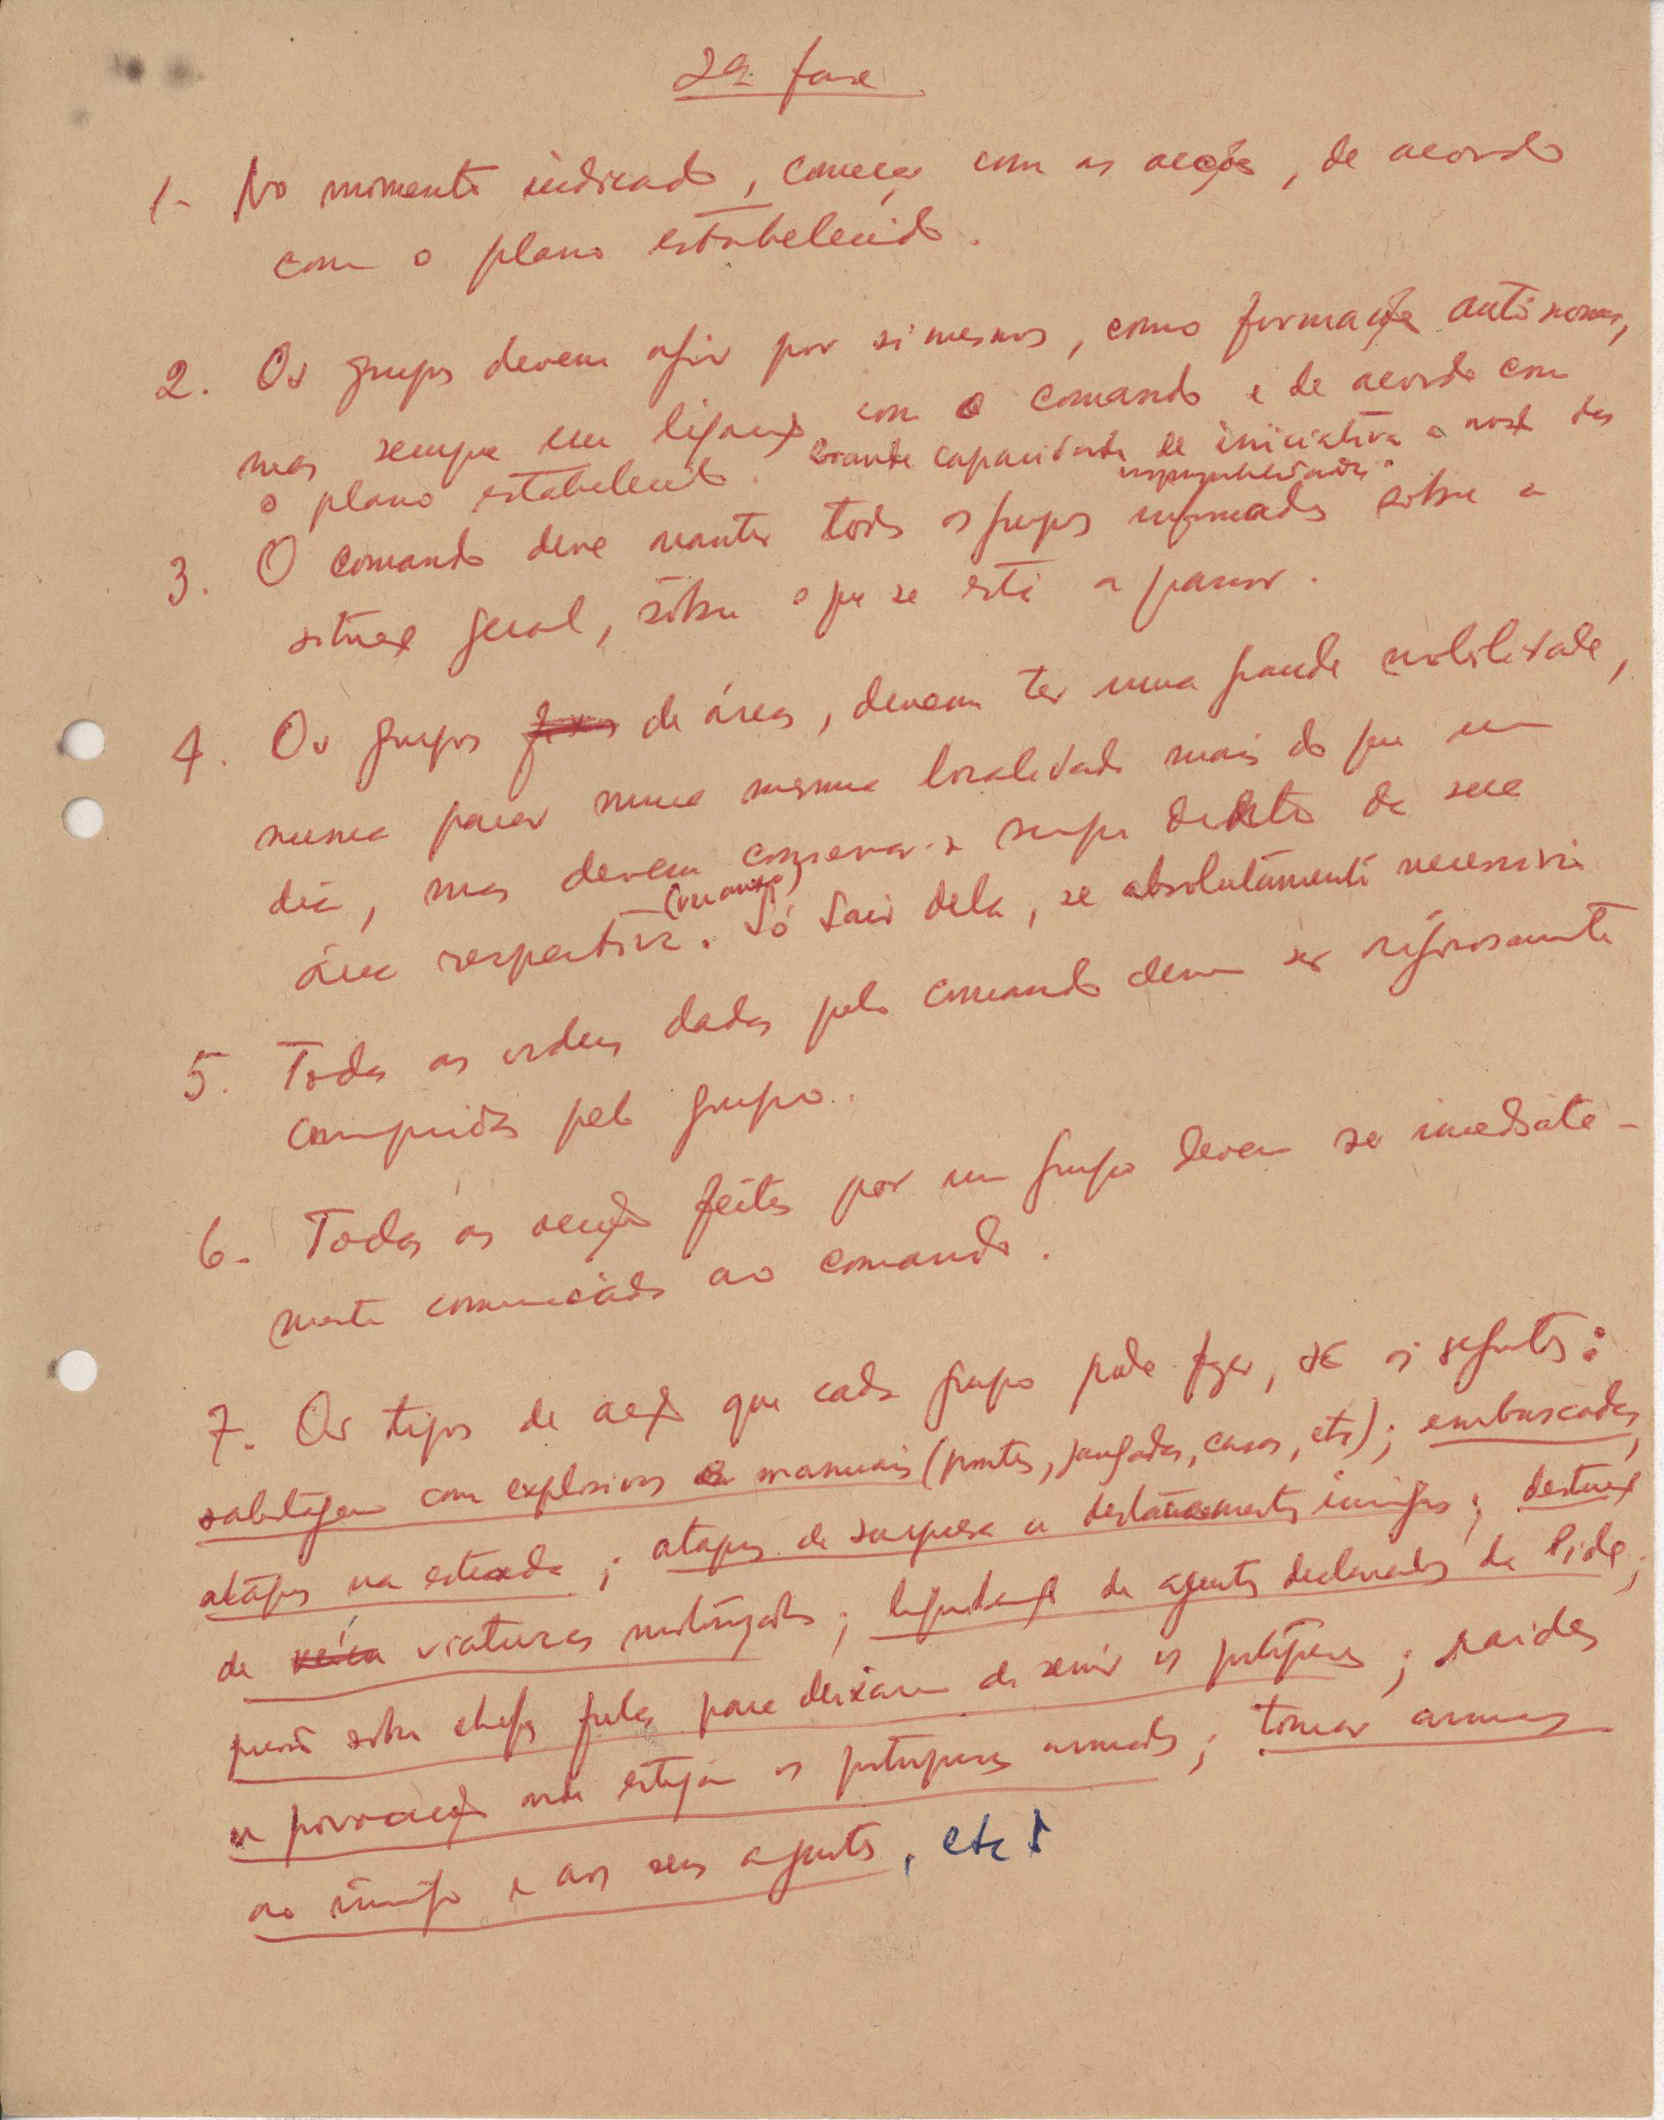 2ª fase
1- No momento indicado, começar com as acções, de acordo
com o plano estabelecido.
2. Os grupos devem agir por si mesmos, como formações autónomas,
mas sempre em ligação com o comando e de acordo com
o plano estabelecido. Grande capacidade de iniciativa e noção das
responsabilidades.
3. O comando deve manter todos os grupos informados sôbre a
situação geral, sôbre o que se está a passar.
4. Os grupos de áreas, devem ter uma grande mobilidade,
nunca parar numa mesma localidade mais do que um
dia, mas devem conservar-se sempre dentro da sua
área respectiva. Só sair dela, se absolutamente necessário
5. Todas as ordens dadas pelo comando devem ser rigorosamente
cumpridas pelo grupo.
6- Todas as acções feitas por um grupo devem ser imediata-
mente comunicadas ao comando.
7. Os tipos de acção que cada grupo pode fazer, são os seguintes:
sabotagem com explosivos ou manuais (pontes, jangadas, casas, etc); embuscadas,
ataques na estrada; ataques de surpresa a destacamentos inimigos; destruição
de viaturas motorizadas; liquidação de agentes declarados da Pide;
pressão sôbre chefes fulas para deixarem de servir os portugueses; raides
a povoações onde estejam os portugueses armados; tomar armas
ao inimigo e aos seus agentes, etc.